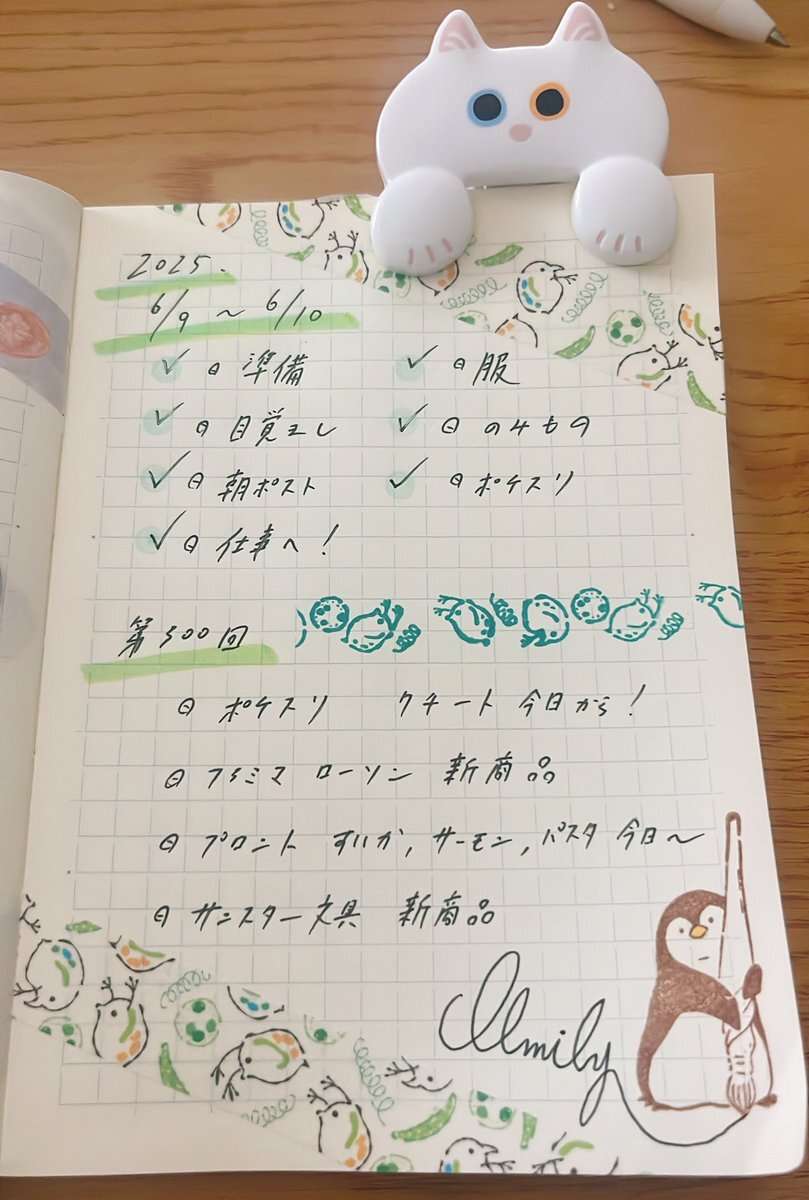 2025.
6/9 ~ 6/10
✓ 日 準備 ✓ 日 服
✓ 日 目覚まし ✓ 日 のみもの
✓ 日 朝ポスト ✓ 日 ポケスリ
✓ 日 仕事へ!
第300回
日 ポケスリ クチート 今日から!
日 ファミマ ローソン 新商品
日 プロント すいか, サーモン, パスタ 今日~
日 サンスター文具 新商品